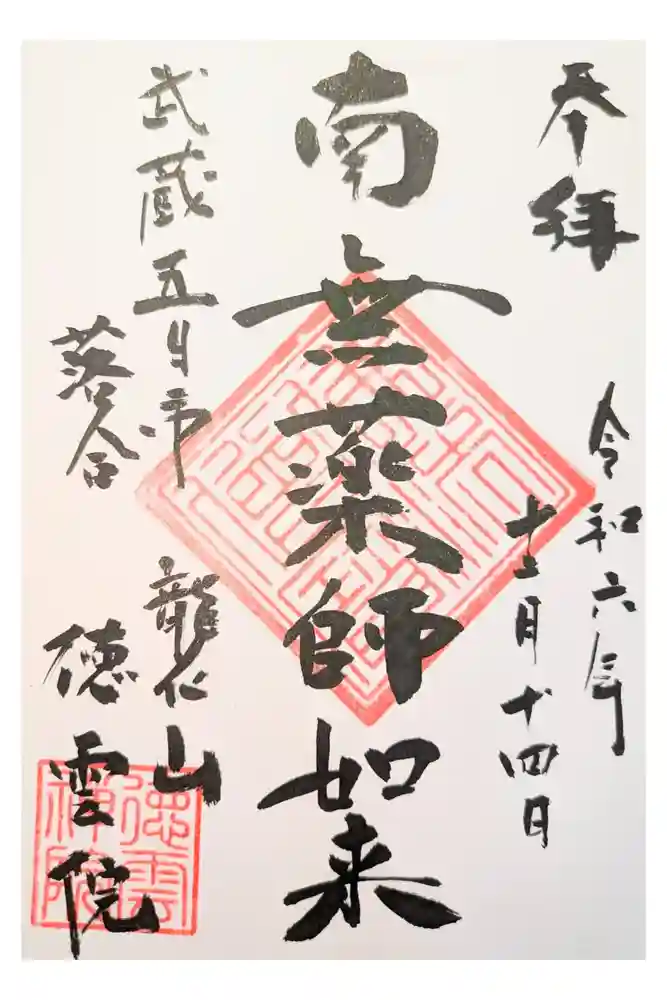 奉拝
令和六年
十二月十四日
南無薬師如来
武蔵五日市
落合
龍仁山
徳雲院
徳雲
禅院